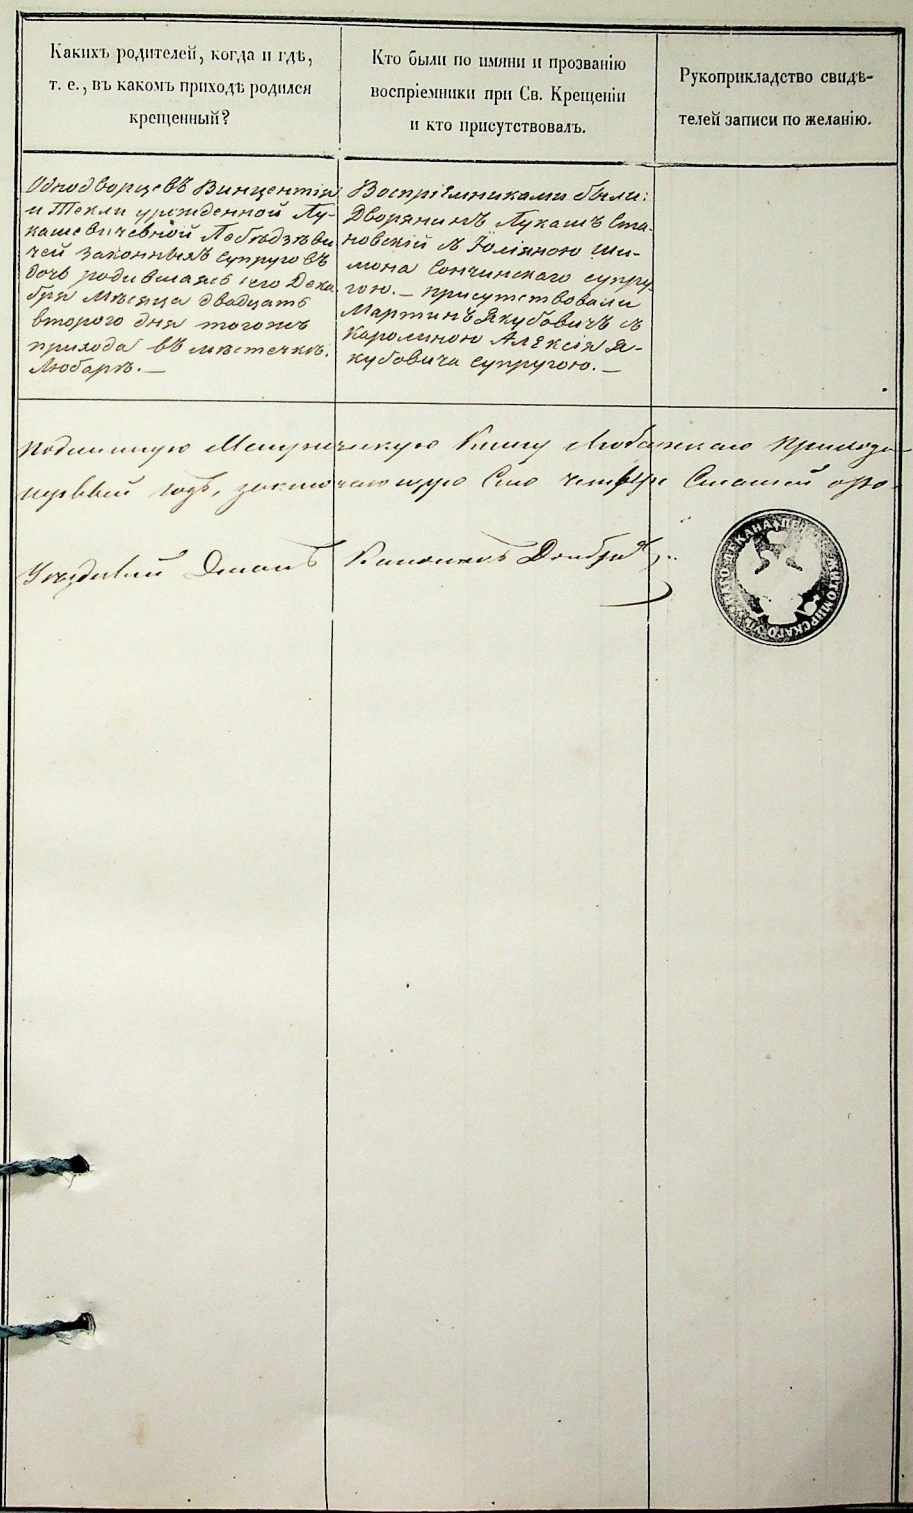 Какихъ родителей, когда и гдѣ,
т. е., въ какомъ приходѣ родился
крещенный?
Кто были по имяни и прозванію
воспріемники при Св. Крещеніи
и кто присутствовалъ.
Рукоприкладство свидѣ-
телей записи по желанію.
Однодворцевъ Винцентія
и Текли урожденной Лу-
кашевичевной Лебѣдзѣви
чей законныхъ супруговъ
дочь родившаяся сего Дека-
бря мѣсяца двадцать
втораго дня тогожъ
прихода въ мѣстечкѣ
Любарѣ.—
Воспріемниками были:
Дворянинъ Лукашъ Ста-
новскій съ Юліяною Ши-
мона Сончинскаго супру-
гою.— присутствовали
Мартинъ Якубовичъ съ
Каролиною Алексія Я-
кубовича супругою.—
подлинную Метрическую Книгу Любарскаго Прихода
первый годъ, заключающую Сто четыре Статей
Уѣздный Деканъ Каноникъ
ДЕКАНА ЖИТОМИРСКАГО